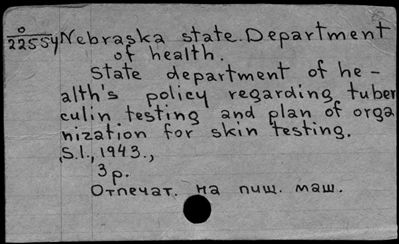 0
22554 Nebraska state. Department
of health.
State department of he-
alth's policy regarding tuber
culin testing and plan of orga
nization for skin testing.
S.l., 1943.,
3 p.
Отпечат. на пиш. маш.